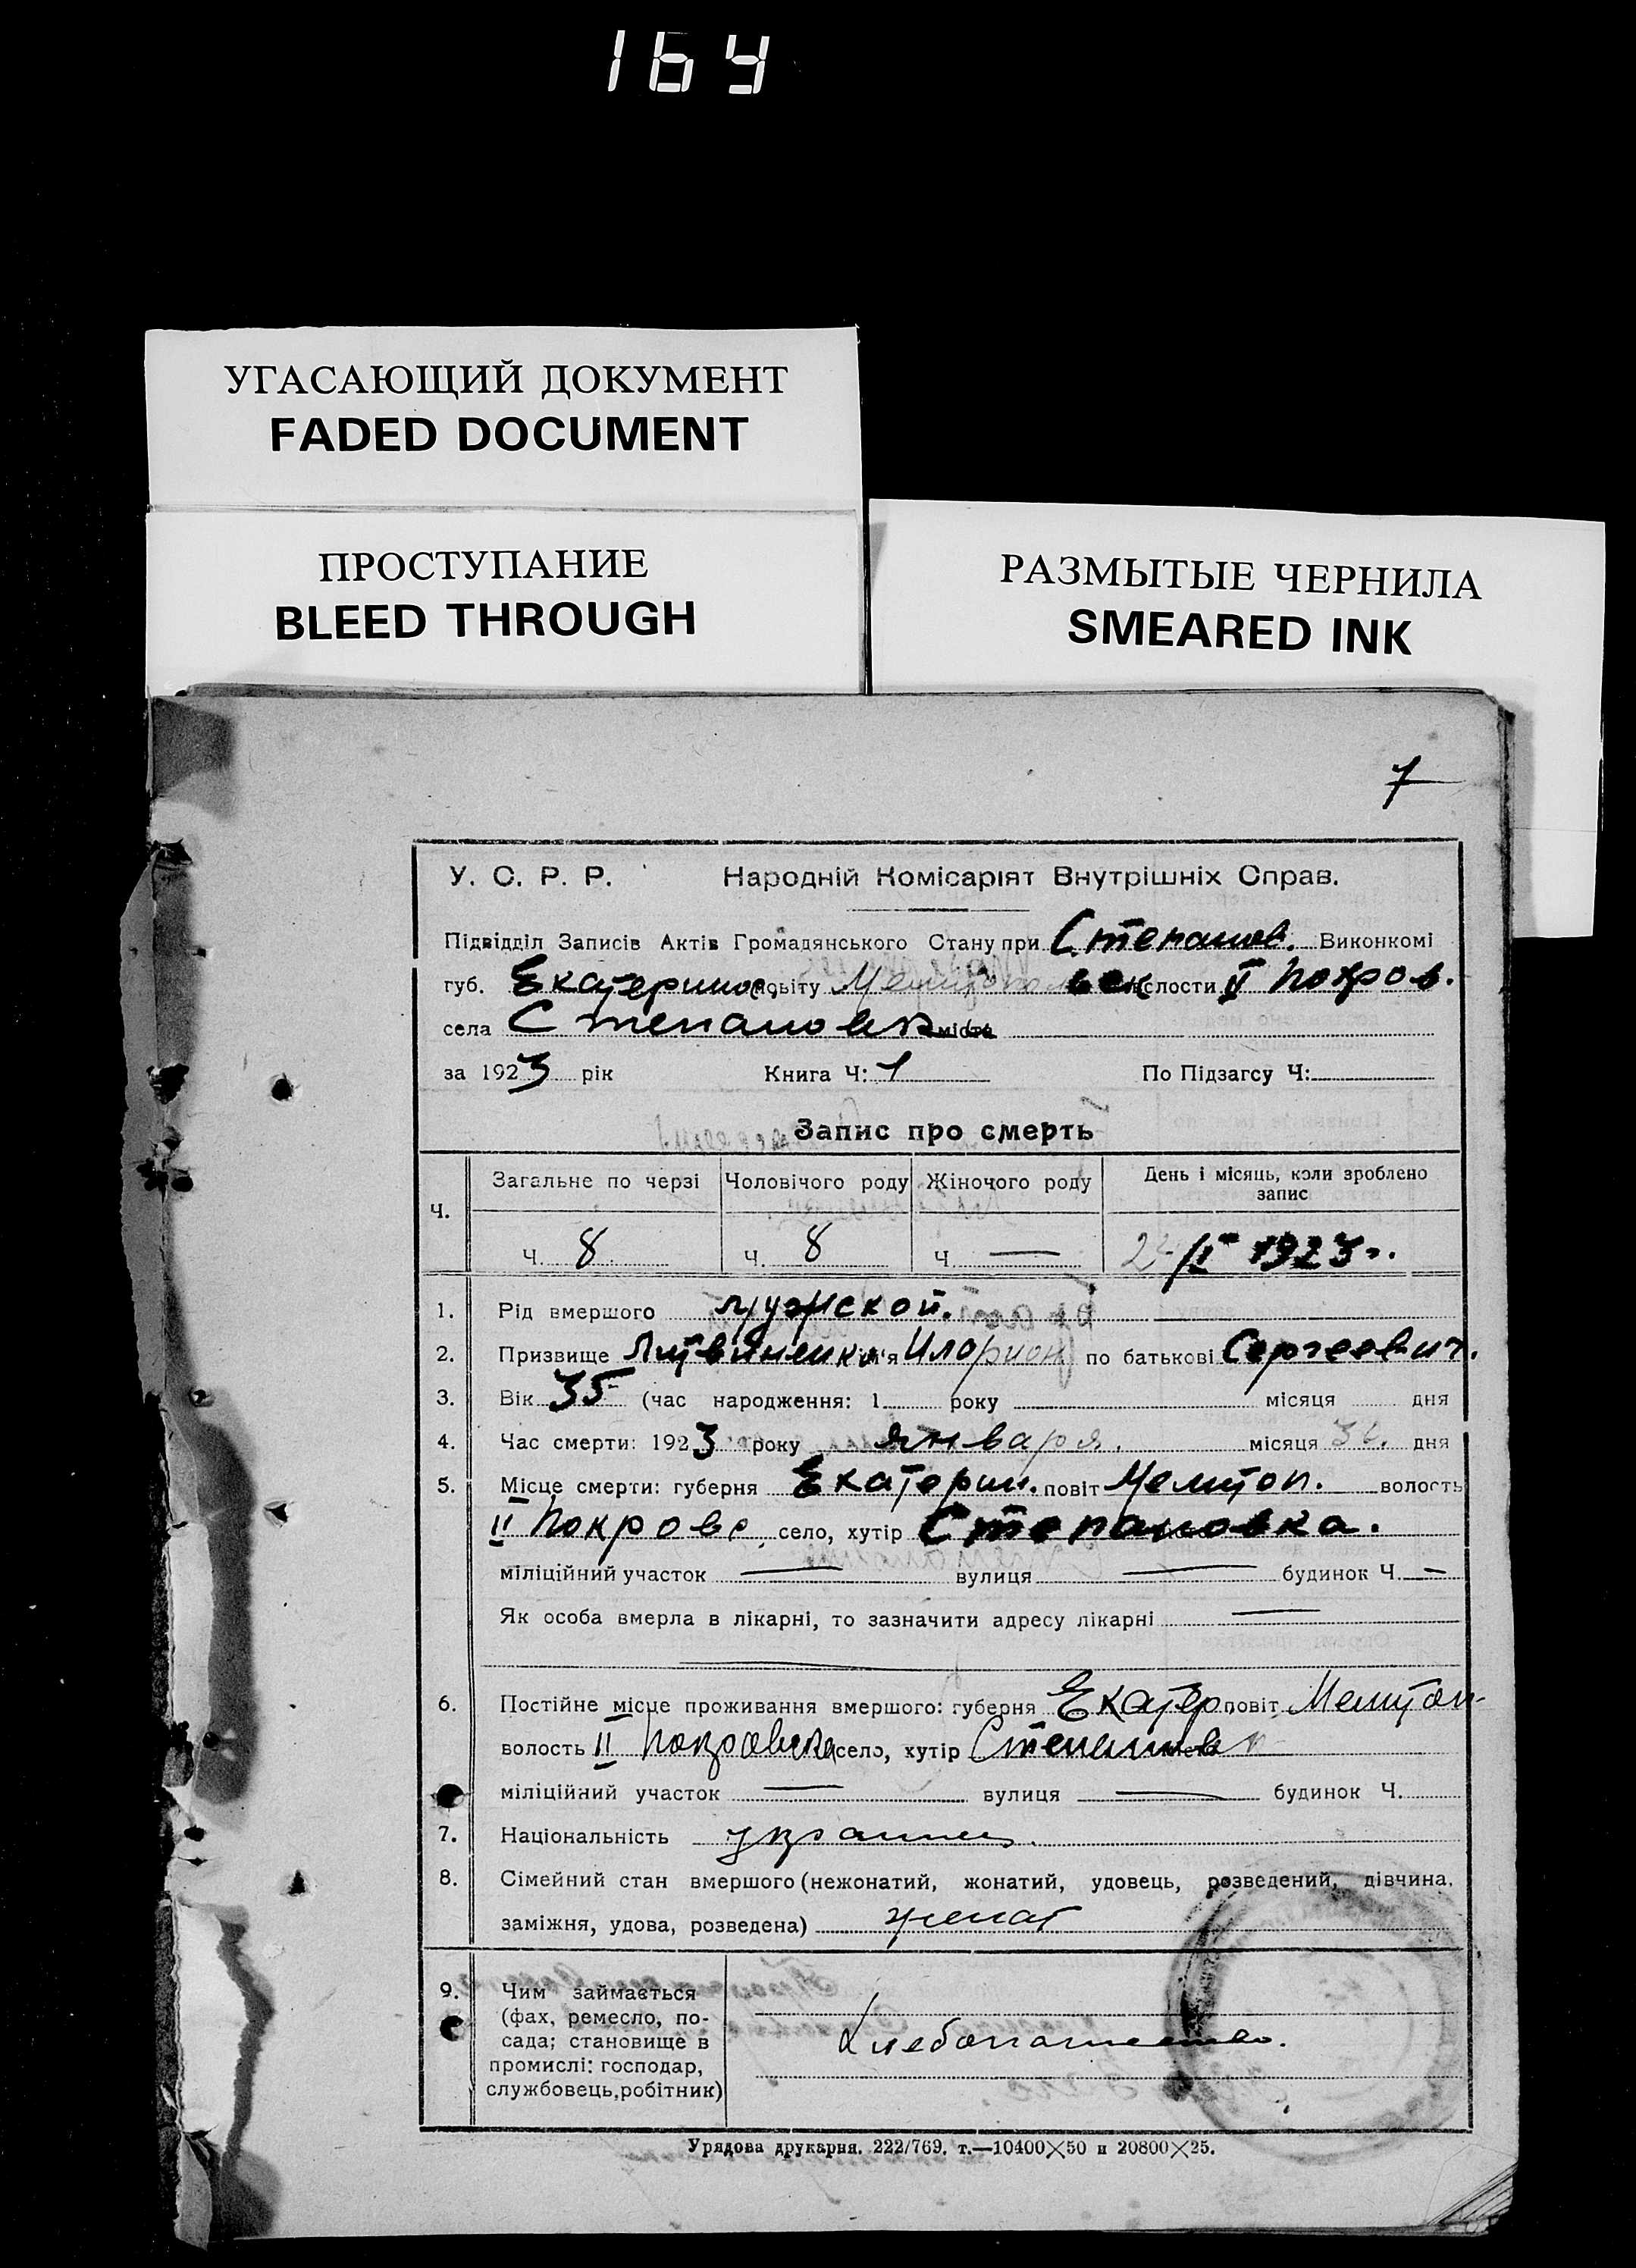 164
УГАСАЮЩИЙ ДОКУМЕНТ
FADED DOCUMENT
ПРОСТУПАНИЕ
BLEED THROUGH
РАЗМЫТЫЕ ЧЕРНИЛА
SMEARED INK
7
У. С. Р. Р. Народній Комісаріят Внутрішніх Справ.
Підвідділ Записів Актів Громадянського Стану при Степанов. Виконкомі
губ. Екатеринос. повіту волости II Покров.
села Степановка міста
за 1923 рік Книга Ч: 1 По Підзагсу Ч:
Запис про смерть
Ч. Загальне по черзі Чоловічого роду Жіночого роду День і місяць, коли зроблено запис
Ч. 8 Ч. 8 Ч. — /II 1923 г.
1. Рід вмершого мужской.
2. Призвище Литвиненко им'я Иларион по батькові Сергеевич.
3. Вік 35 (час народження: 1 року місяця дня
4. Час смерти: 1923 року января. місяця дня
5. Місце смерти: губерня Екатерин. повіт Мелитоп. волость
II Покровс. село, хутір Степановка.
міліційний участок — вулиця — будинок Ч. —
Як особа вмерла в лікарні, то зазначити адресу лікарні —
6. Постійне місце проживання вмершого: губерня Екатер. повіт Мелитоп
волость II Покровска село, хутір Степановк
міліційний участок — вулиця — будинок Ч.
7. Національність украинец.
8. Сімейний стан вмершого (нежонатий, жонатий, удовець, розведений, дівчина,
заміжня, удова, розведена) женат
9. Чим займається
(фах, ремесло, по-
сада; становище в
промислі: господар,
службовець, робітник)
Хлебопашество.
Урядова друкарня. 222/769. т.—10400×50 и 20800×25.